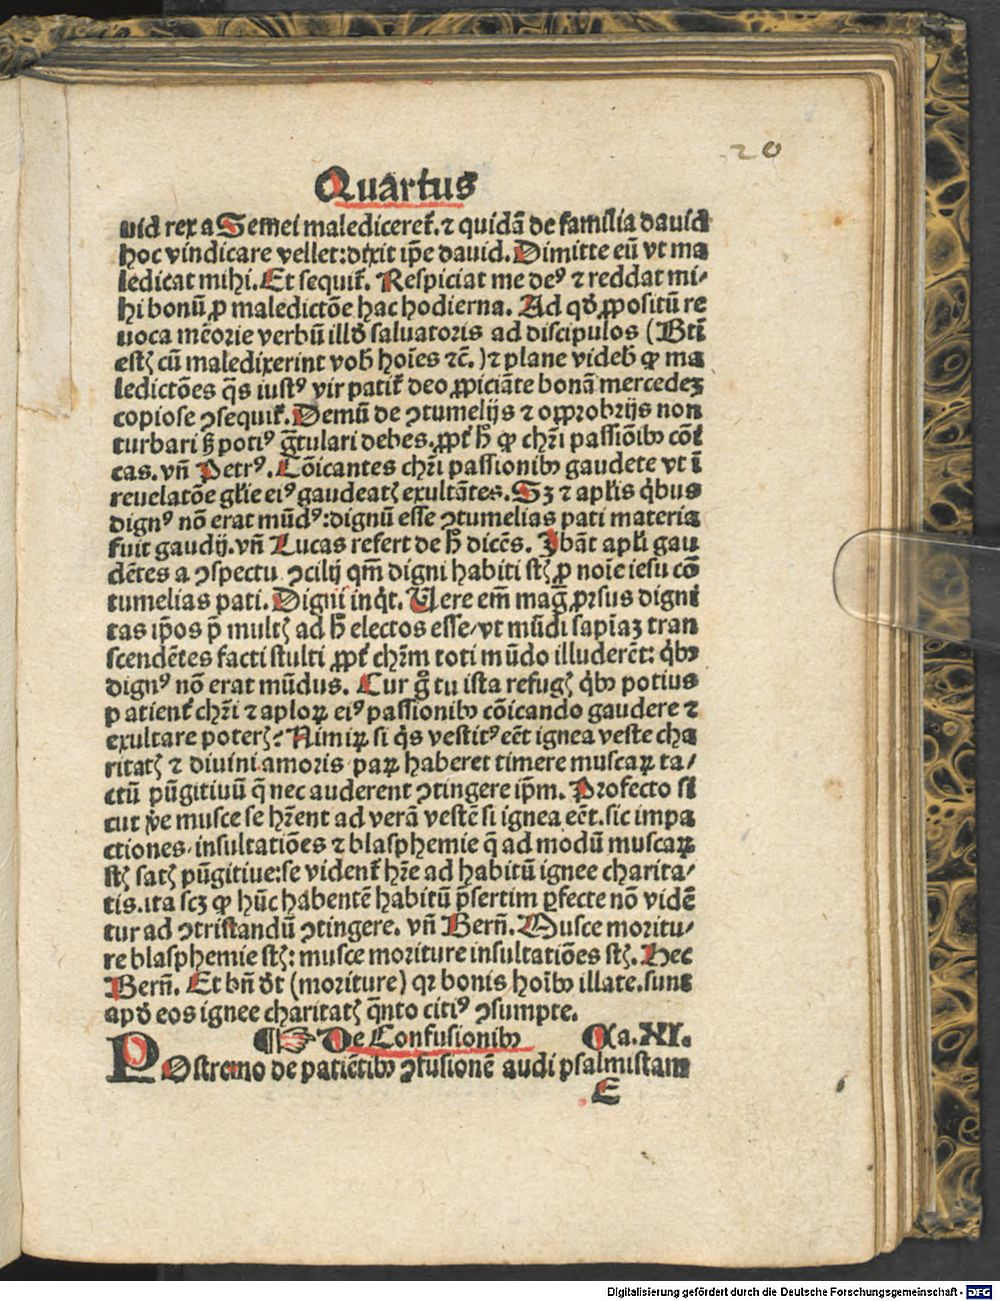 20
Quartus
uid rex a Semei malediceret᷑. ⁊ quidā de familia dauid
hoc vindicare vellet:dixit ip̄e dauid. Dimitte eū vt ma
ledicat mihi. Et sequit᷑. Respiciat me deꝰ ⁊ reddat mi⸗
hi bonū ꝓ maledictōe hac hodierna. Ad qd̓ ꝓpositū re
uoca mēorie verbū illd̓ saluatoris ad discipulos (Bt̄i
estꝭ cū maledixerint vob̄ hoīes ⁊c̄.) ⁊ plane videb̄ ꝙ ma
ledictōes q̄s iustꝰ vir patit᷑ deo ꝓpiciāte bonā mercedeꝫ
copiose ↄsequit᷑. Demū de ↄtumelijs ⁊ opprobrijs non
turbari sꝫ potiꝰ gr̄tulari debes. ꝓpt̓ h̄ ꝙ chr̄i passiōibꝰ cōi
cas. vn̄ Petrꝰ. Cōicantes chr̄i passionibꝰ gaudete vt ī
reuelatōe gl̓ie eiꝰ gaudeatꝭ exultātes. Sꝫ ⁊ apl̓is q̇bus
dignꝰ nō erat mūdꝰ:dignū esse ↄtumelias pati materia
fuit gaudij. vn̄ Lucas refert de h̄ dicēs. Ibāt apl̓i gau
dētes a ↄspectu ↄcilij qm̄ digni habiti st̄ꝭ ꝓ noīe iesu cō
tumelias pati. Digni inq̇t. Uere em̄ mag̅ ꝓrsus digni
tas ip̄os p̄ multꝭ ad h̄ electos esse/vt mūdi sapīaꝫ tran
scendētes facti stulti ꝓpt̓ chr̄m toti mūdo illuderēt: q̇bꝰ
dignꝰ nō erat mūdus. Cur g̊ tu ista refugꝭ q̇bꝰ potius
patient᷑ chr̄i ⁊ aploꝝ eiꝰ passionibꝰ cōicando gaudere ⁊
exultare poterꝭ? Nimiꝝ si q̇s vestitꝰ eēt ignea veste cha
ritatꝭ ⁊ diuini amoris paꝝ haberet timere muscaꝝ ta⸗
ctū pūgitiuū q̄ nec auderent ↄtingere ip̄m. Profecto si
cut v̓e musce se hr̄ent ad verā vestē si ignea eēt. sic impa
ctiones. insultatiōes ⁊ blasphemie q̄ ad modū muscaꝝ
st̄ꝭ satꝭ pūgitiue:se vident᷑ hr̄e ad habitū ignee charita⸗
tis. ita scꝫ ꝙ hūc habentē habitū p̄sertim ꝑfecte nō vidē
tur ad ↄtristandū ↄtingere. vn̄ Bern̄. Musce moritu⸗
re blasphemie st̄ꝭ: musce moriture insultatiōes st̄ꝭ. Hec
Bern̄. Et bn̄ dt̓ (moriture) qꝛ bonis hoībꝰ illate. sunt
apd̓ eos ignee charitatꝭ q̄nto citiꝰ ↄsumpte.
¶☞ De Confusionibꝰ Ca. XI.
POstremo de patiētibꝰ ↄfusionē audi psalmistam
E
Digitalisierung gefördert durch die Deutsche Forschungsgemeinschaft - DFG